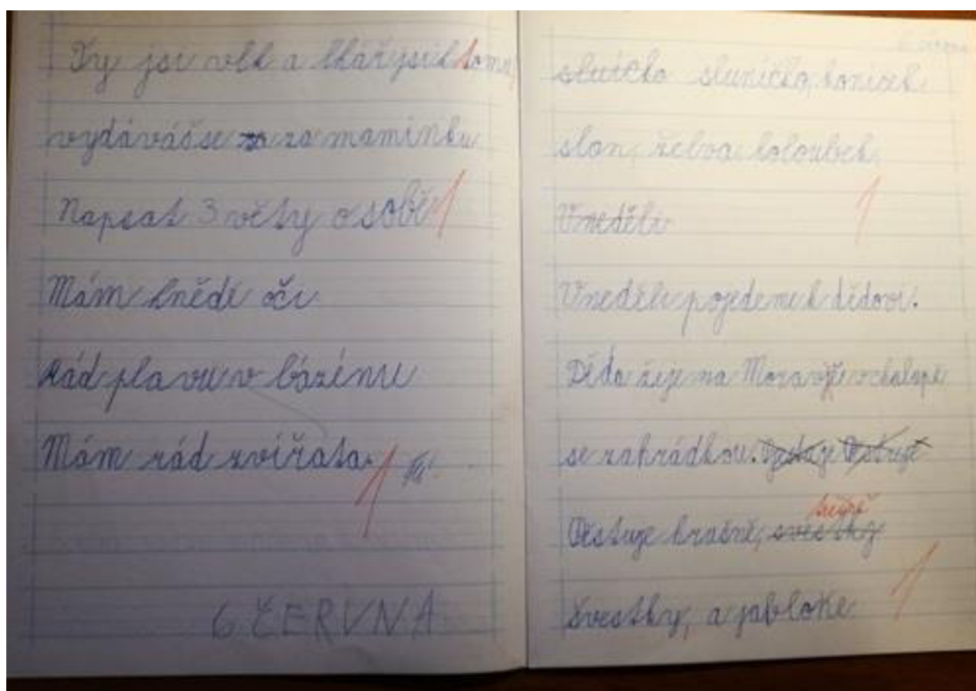 Ty jsi vlk a lkářysik tomu
vydáváš se za maminku
Napsat 3 věty o sobě 1
Mám hnědé oči
Rád plavu v bázénu
Mám rád zvířata. 1
6 ČERVNA
sluíčko sluníčko, koníček
slon, želva, holoubek 1
Vneděli
Vneděli pojedeme k dědovi.
Děda žije na Moravě v chalupě
se zahrádkou.
Pěstuje krásné, švestky
švestky, a jabloke 1